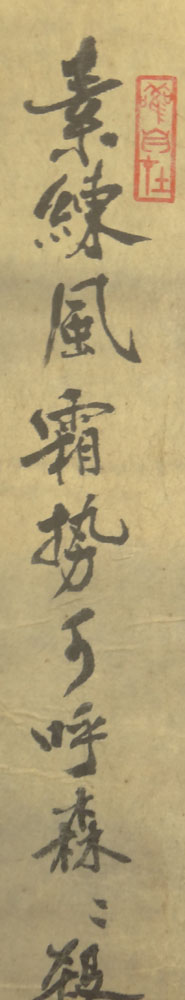 素練風霜勢可呼森〻殺